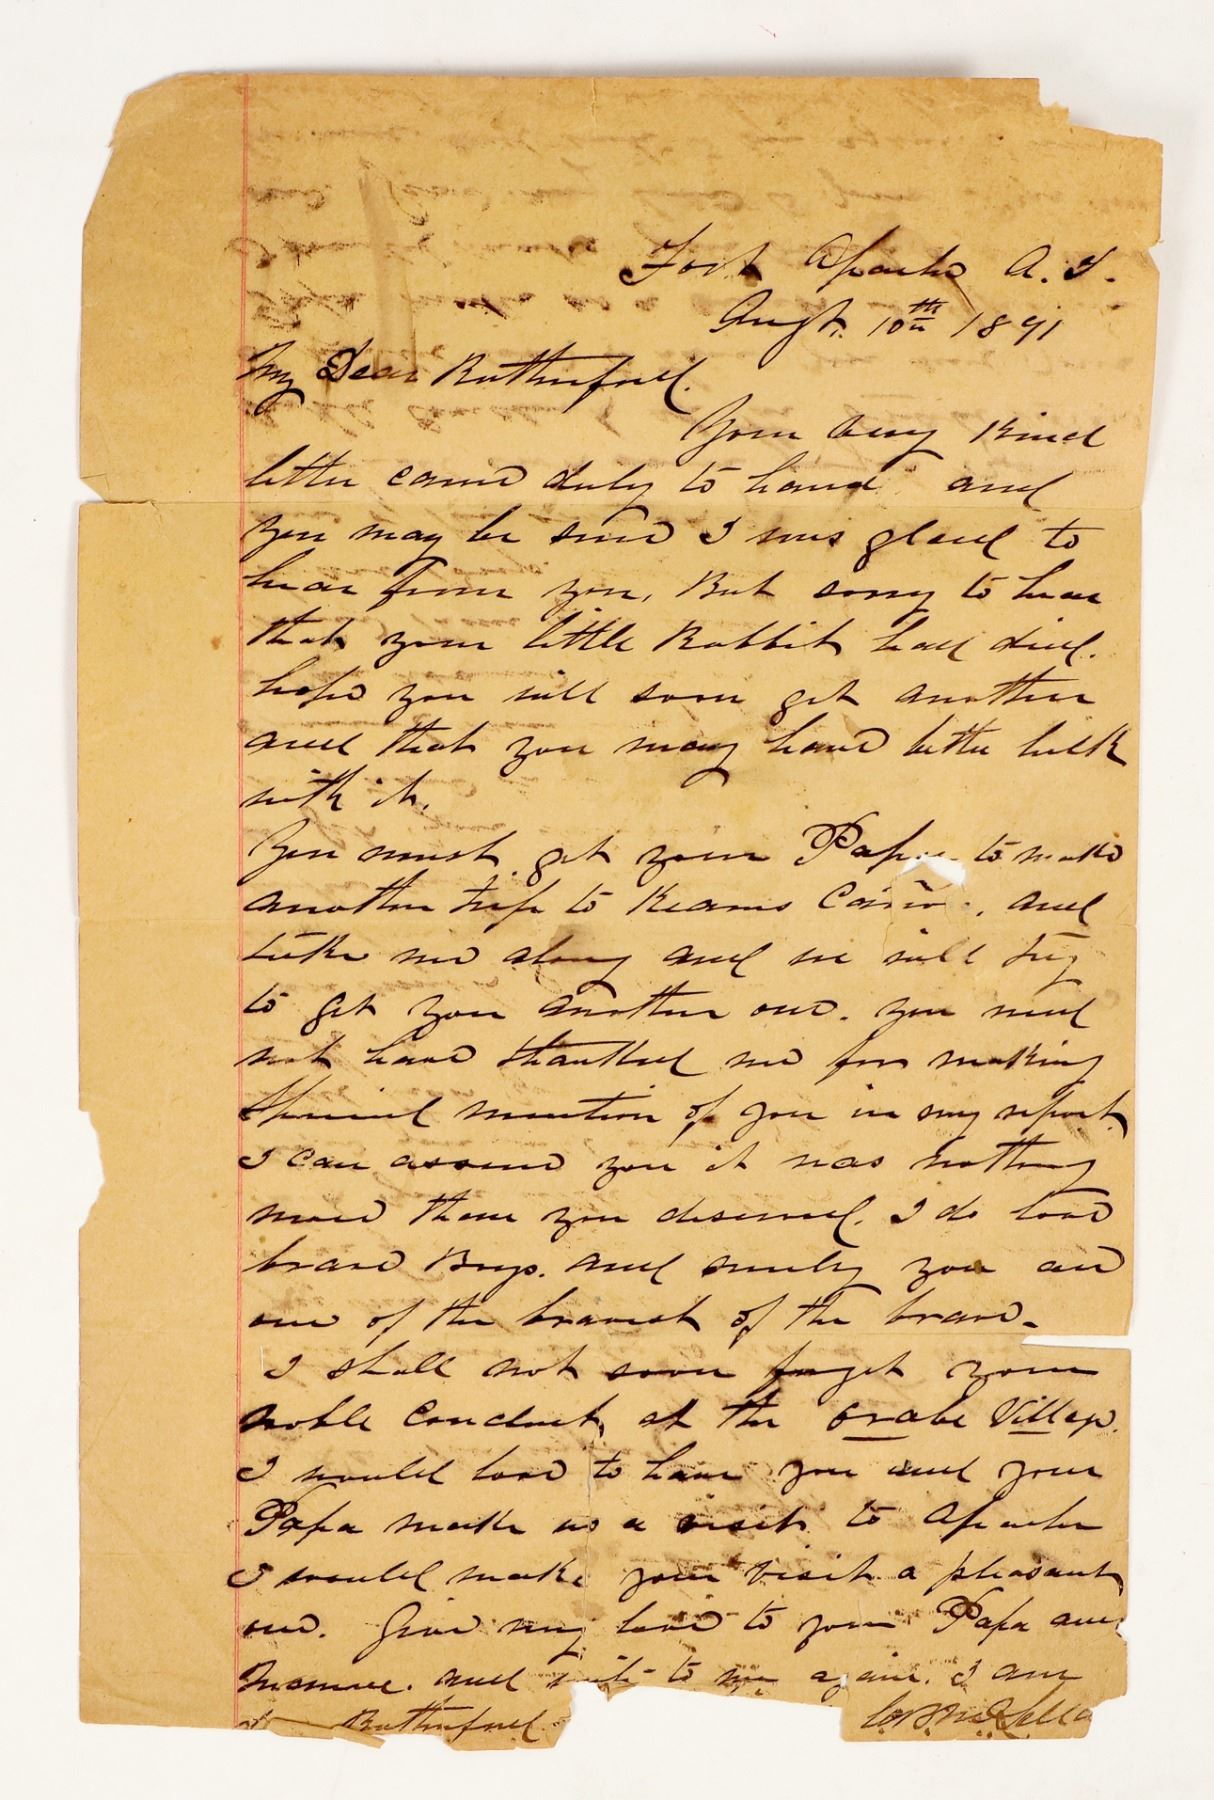 Fort Apache A. T.
Augt. 10th 1891
My Dear Rutherford.
Your very Kind
letter came duly to hand and
you may be sure I was glad to
hear from you, But sorry to hear
that your little Rabbit had died.
hope you will soon get another
and that you may have better luck
with it.
You must get your Papa to make
another trip to Keams Cañon, and
take me along and we will try
to get you another one. you need
not have thanked me for making
special mention of you in my report.
I can assure you it was nothing
more than you deserved. I do love
brave Boys. and surely you are
one of the bravest of the brave.
I shall not soon forget your
noble conduct, at the Oraibe Village.
I would love to have you and your
Papa make us a visit to Apache
I would make your visit a pleasant
one. Give my love to your Papa and
Mamma. and write to me again. I am
Rutherford